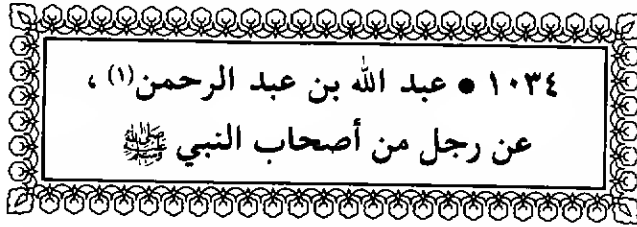 ١٠٣٤ • عبد الله بن عبد الرحمن(١)،
عن رجل من أصحاب النبي ﷺ